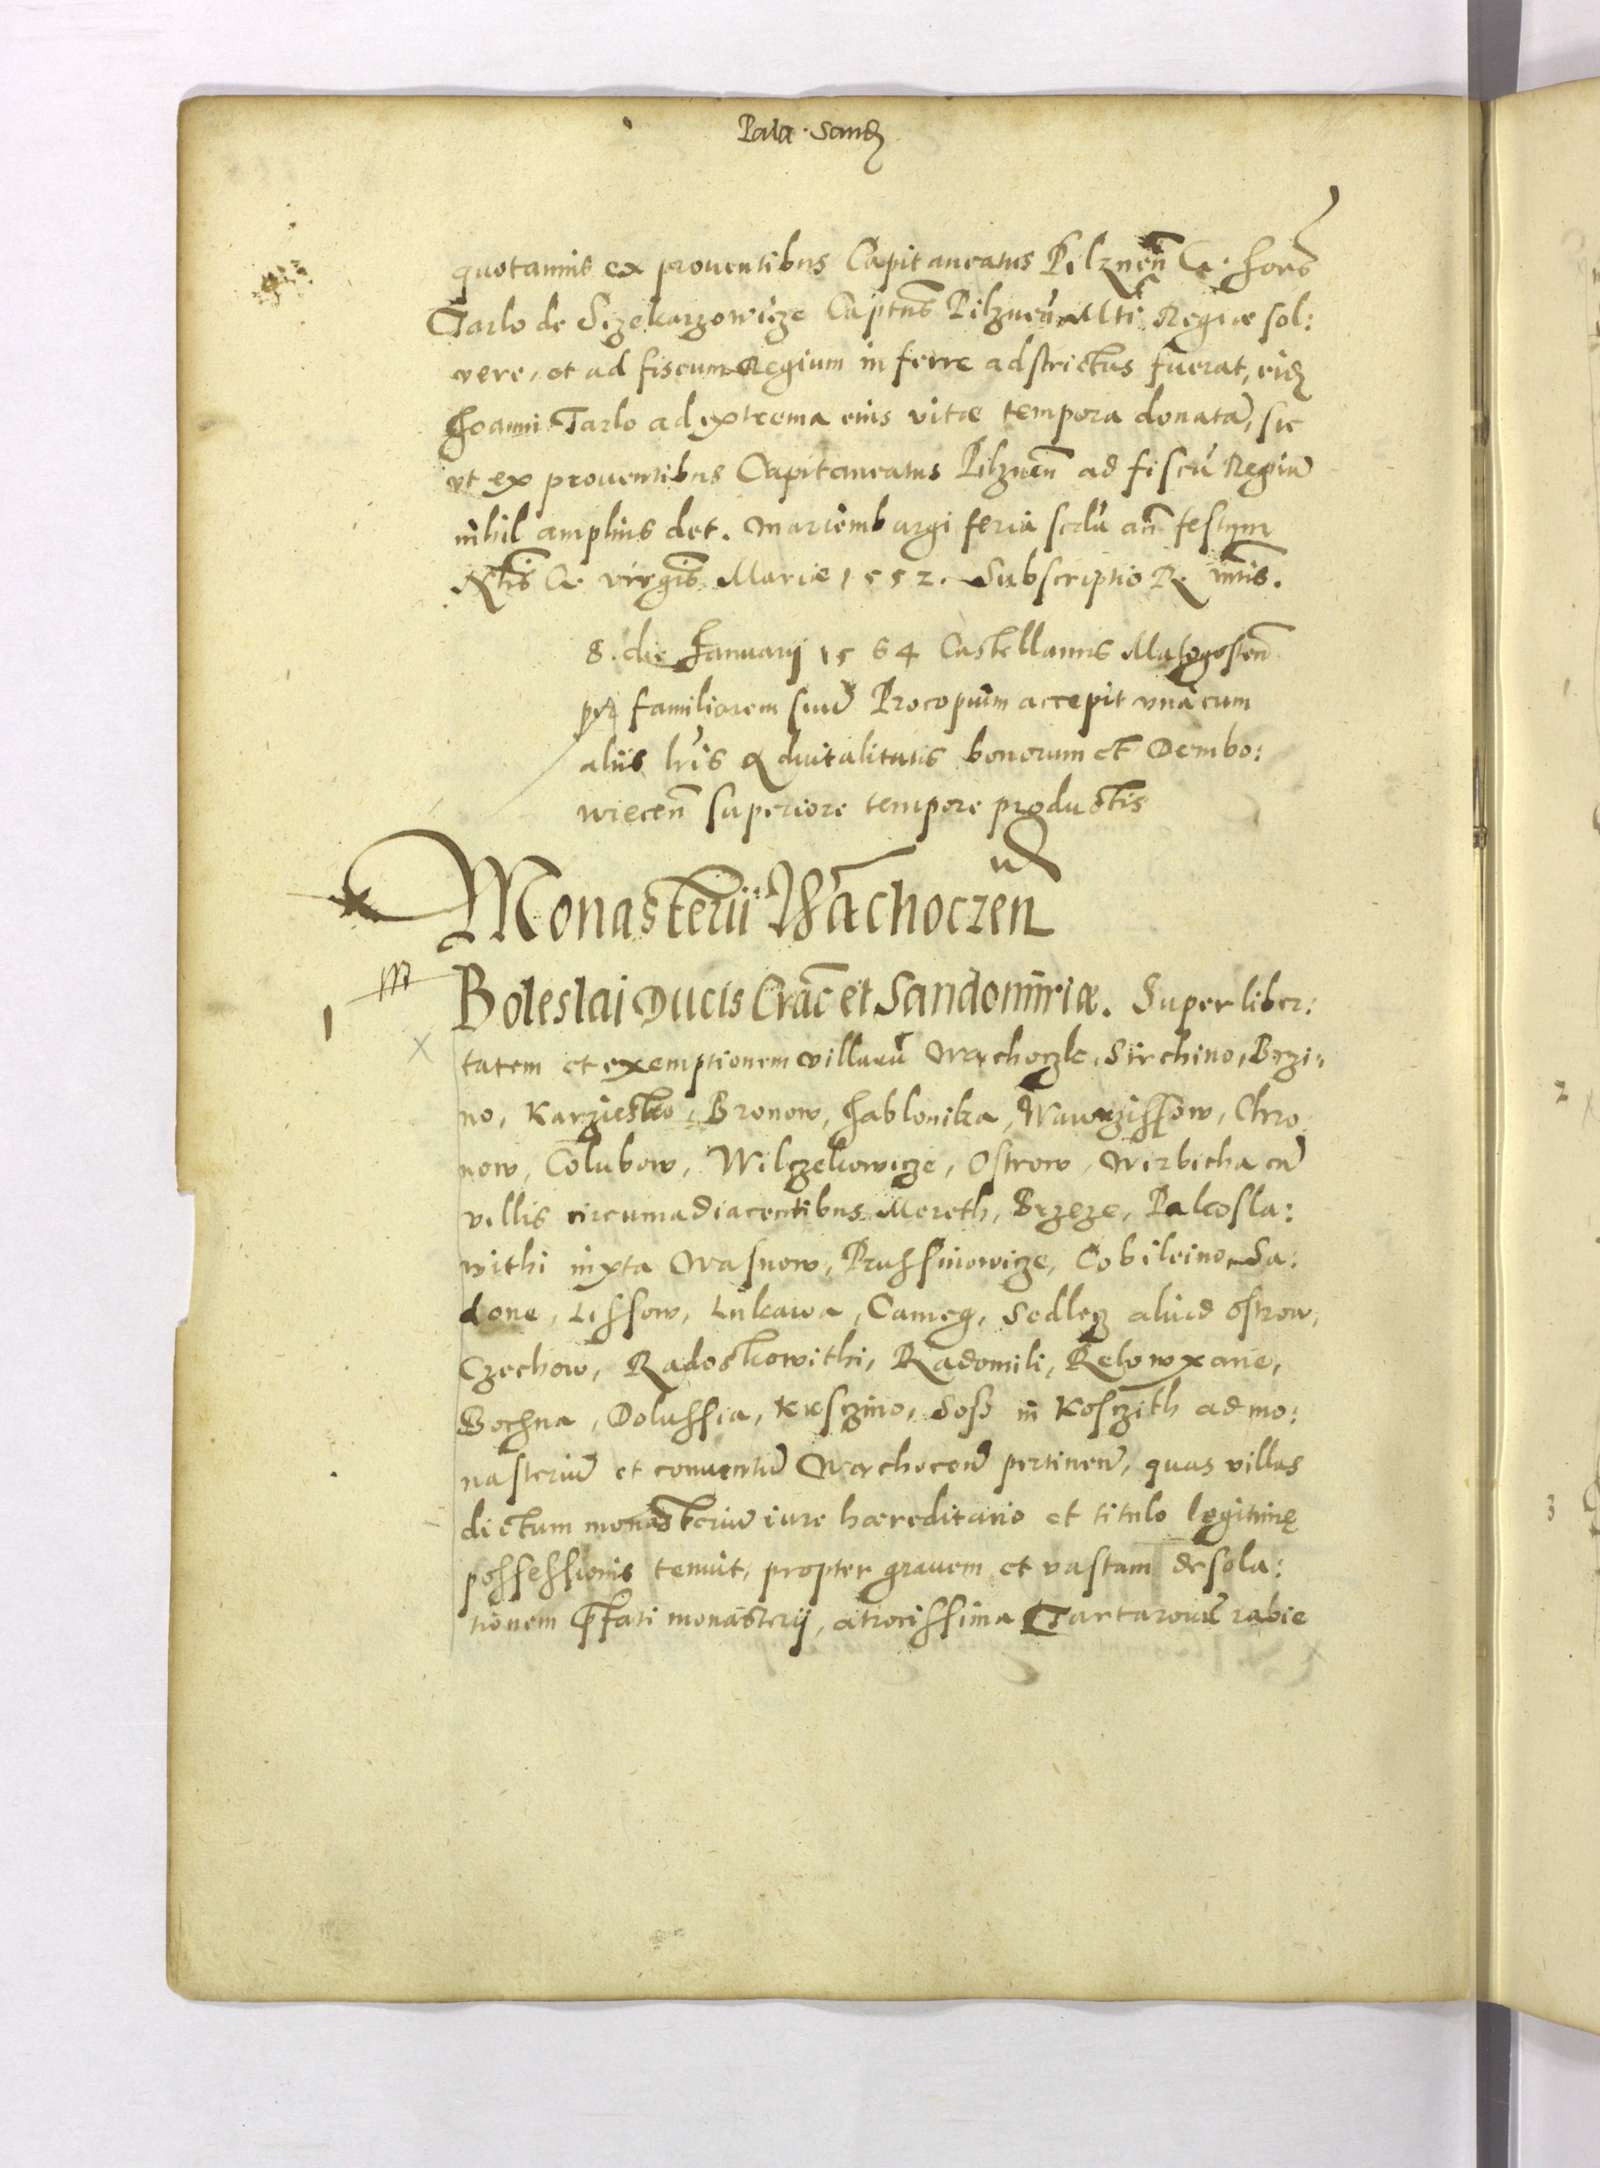 Pala. Sand
quotannis ex prouentibus Capitaneatus Pilznen̄ G. Joan̄
Tarlo de Sczekarzowicze Capt̄ns Pilznen̄ Mti Regiæ sol:
vere, et ad fiscum Regium inferre adstrictus fuerat, eid
Joanni Tarlo ad extrema eius vitæ tempora donatā, sic
vt ex prouentibus Capitaneatus Pilznen̄ ad fiscū Regiū
nihil amplius det. Mariemburgi feria scdā an̄ festum
Ntis G. virginis Mariæ 1552. Subscriptio R. mtis.
8. die Januarij 1564 Castellanus Malogosten̄
per familiarem suū Procopium accepit vnà cum
aliis lr̄is aduitalitatis bonorum et Dembo:
wiecen̄ superiore tempore productis
Monasterii Wāchoczen
1
m
Boleslai Ducis Crāc et Sandomiriæ. Super liber:
tatem et exemptionem villarū Wachoczk, Sirchino, Brzi:
no, Karziesko, Bronow, Jablonika, Wawrzissow, Chro
now, Colubow, Wilczekowicze, Ostrow, Wirbicha cū
villis circumadiacentibus Mereth, Brzeze, Palcosla:
withi iuxta Wasnow, Prussinowicze, Cobileino, Sa:
done, Lissow, Lukawa, Cameg, Sedlecz aliud Ostrow,
Czechow, Radoskowithi, Radomili, Relowxane,
Bochna, Dolussia, Krsczino, Sosz in Kosczith ad mo:
nasteriū et conuentū Wachocen̄ pertinen̄, quas villas
dictum monasteriū iure hæreditario et titulo legitimę
possessionis tenuit, propter grauem et vastam desola:
tionem p̄fati monasterij, atrocissima Tartarorū rabie